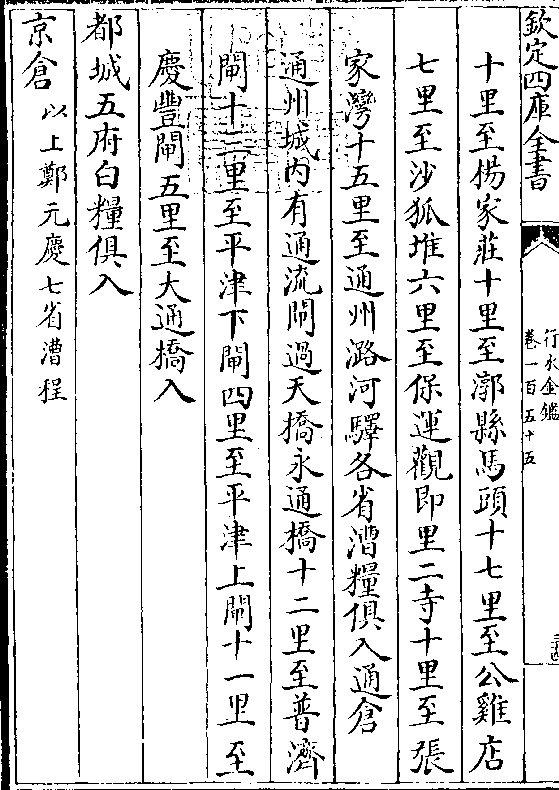 欽定四庫全書
行水金鑑
卷一百五十五
十里至楊家莊十里至漷縣馬頭十七里至公雞店
七里至沙狐堆六里至保運觀即里二寺十里至張
家灣十五里至通州潞河驛各省漕糧俱入通倉
通州城内有通流閘過天橋永通橋十二里至普濟
閘十二里至平津下閘四里至平津上閘十一里至
慶豐閘五里至大通橋入
都城五府白糧俱入
京倉以上鄭元慶七省漕程